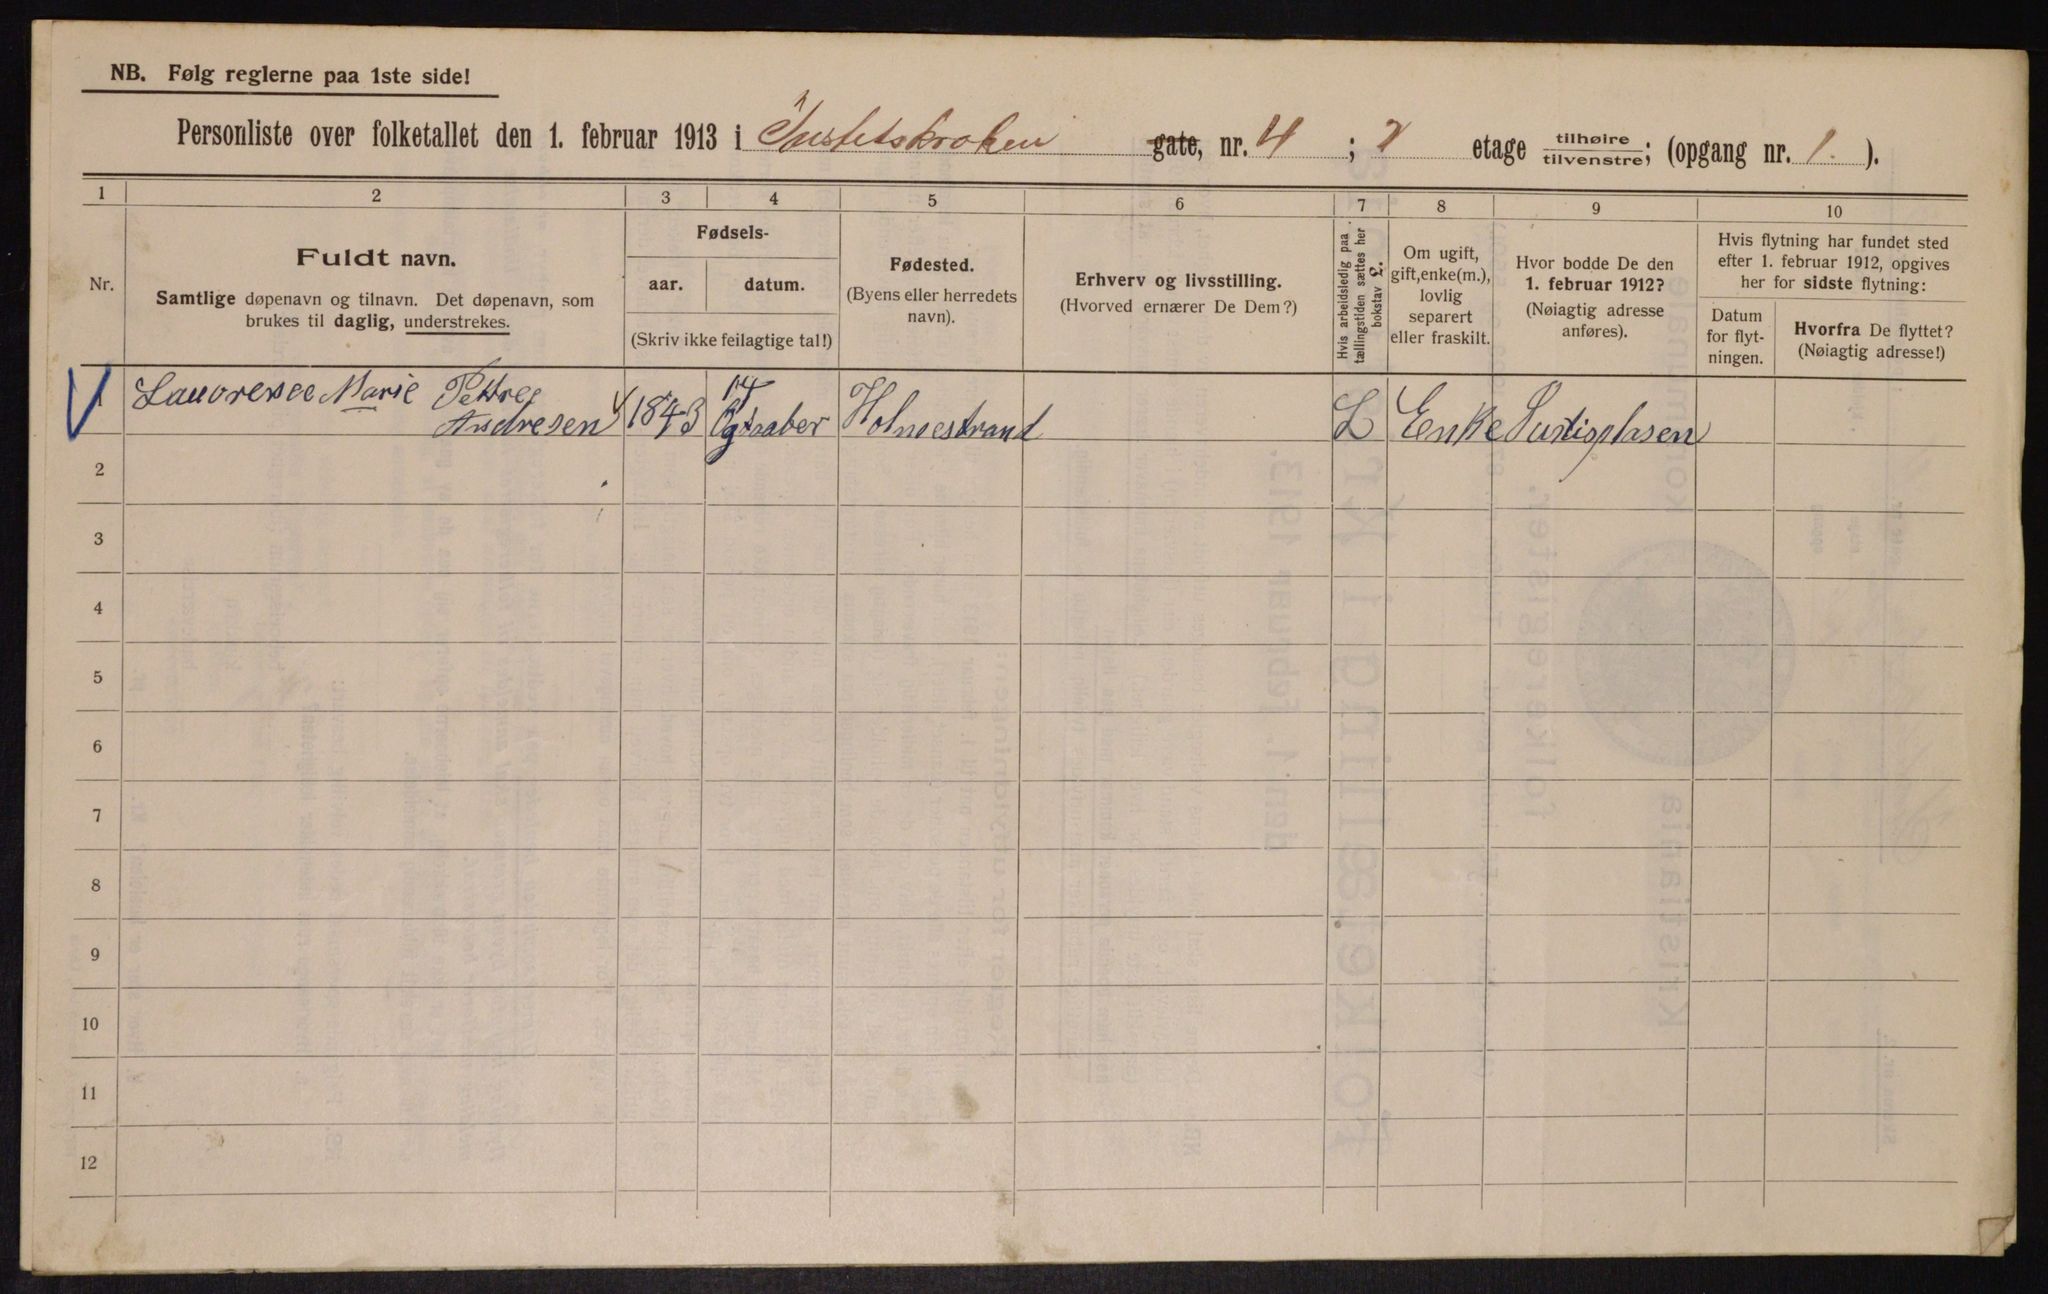 NB. Følg reglerne paa 1ste side!
Personliste over folketallet den 1. februar 1913 i Justitskroken gate, nr. 4 ; 2 etage tilhøire tilvenstre; (opgang nr. 1. ).
1 2 3 4 5 6 7 8 9 10
Nr.
Fuldt navn.
Samtlige døpenavn og tilnavn. Det døpenavn, som
brukes til daglig, understrekes.
Fødsels-
aar. datum.
(Skriv ikke feilagtige tal!)
Fødested.
(Byens eller herredets
navn).
Erhverv og livsstilling.
(Hvorved ernærer De Dem?)
Hvis arbeidsledig paa
tællingstiden sættes her
bokstav L.
Om ugift,
gift, enke(m.),
lovlig
separert
eller fraskilt.
Hvor bodde De den
1. februar 1912?
(Nøiagtig adresse
anføres).
Hvis flytning har fundet sted
efter 1. februar 1912, opgives
her for sidste flytning:
Datum
for flyt-
ningen.
Hvorfra De flyttet?
(Nøiagtig adresse!)
1 Marie
Andresen 1843 Holmestrand L Enke
2
3
4
5
6
7
8
9
10
11
12